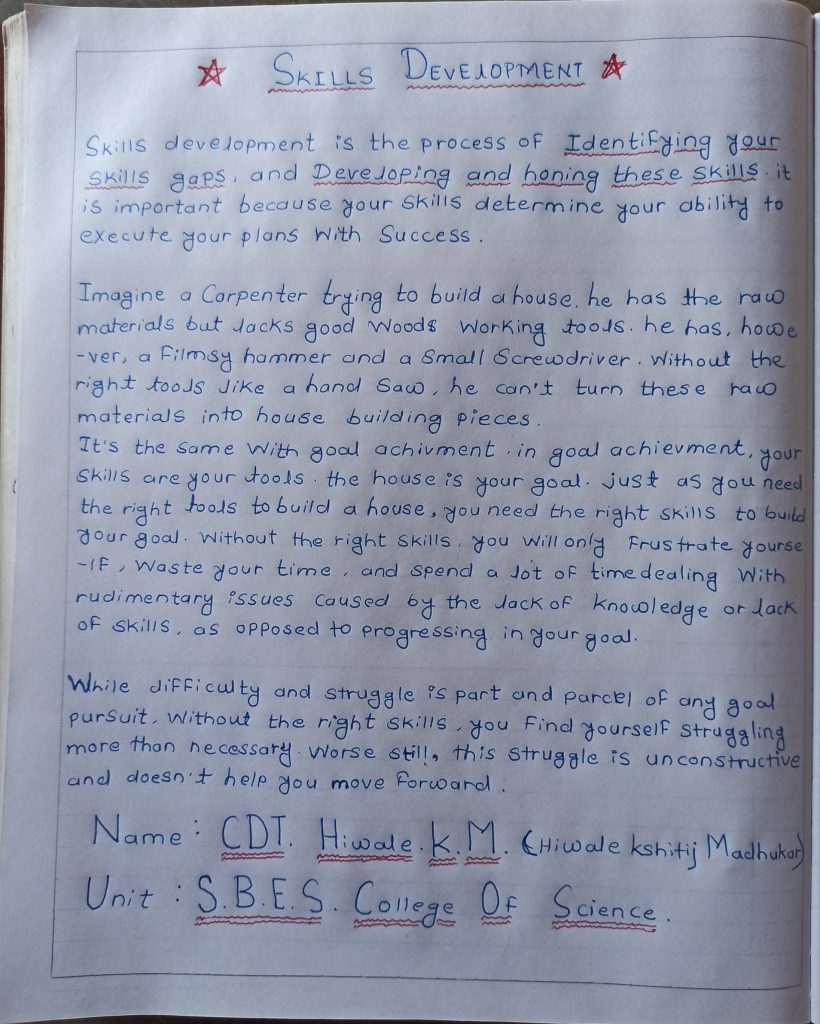 SKILLS DEVELOPMENT
Skills development is the process of Identifying your
skills gaps, and Developing and honing these skills. it
is important because your skills determine your ability to
execute your plans With Success.
Imagine a Carpenter trying to build a house. he has the raw
materials but lacks good Woods Working tools. he has, howe
-ver, a Filmsy hammer and a Small Screwdriver. Without the
right tools like a hand Saw, he can't turn these raw
materials into house building pieces.
It's the same With goal achivment. in goal achievment, your
skills are your tools. the house is your goal. just as you need
the right tools to build a house, you need the right skills to build
your goal. Without the right skills, you will only Frustrate yourse
-lf, Waste your time, and spend a lot of time dealing With
rudimentary issues caused by the lack of knowledge or lack
of skills, as opposed to progressing in your goal.
While difficulty and struggle is part and parcel of any goal
pursuit, Without the right skills, you Find yourself struggling
more than necessary. Worse still, this struggle is unconstructive
and doesn't help you move Forward.
Name : CDT. Hiwale. K. M. (Hiwale kshitij Madhukar)
Unit : S.B.E.S. College Of Science.